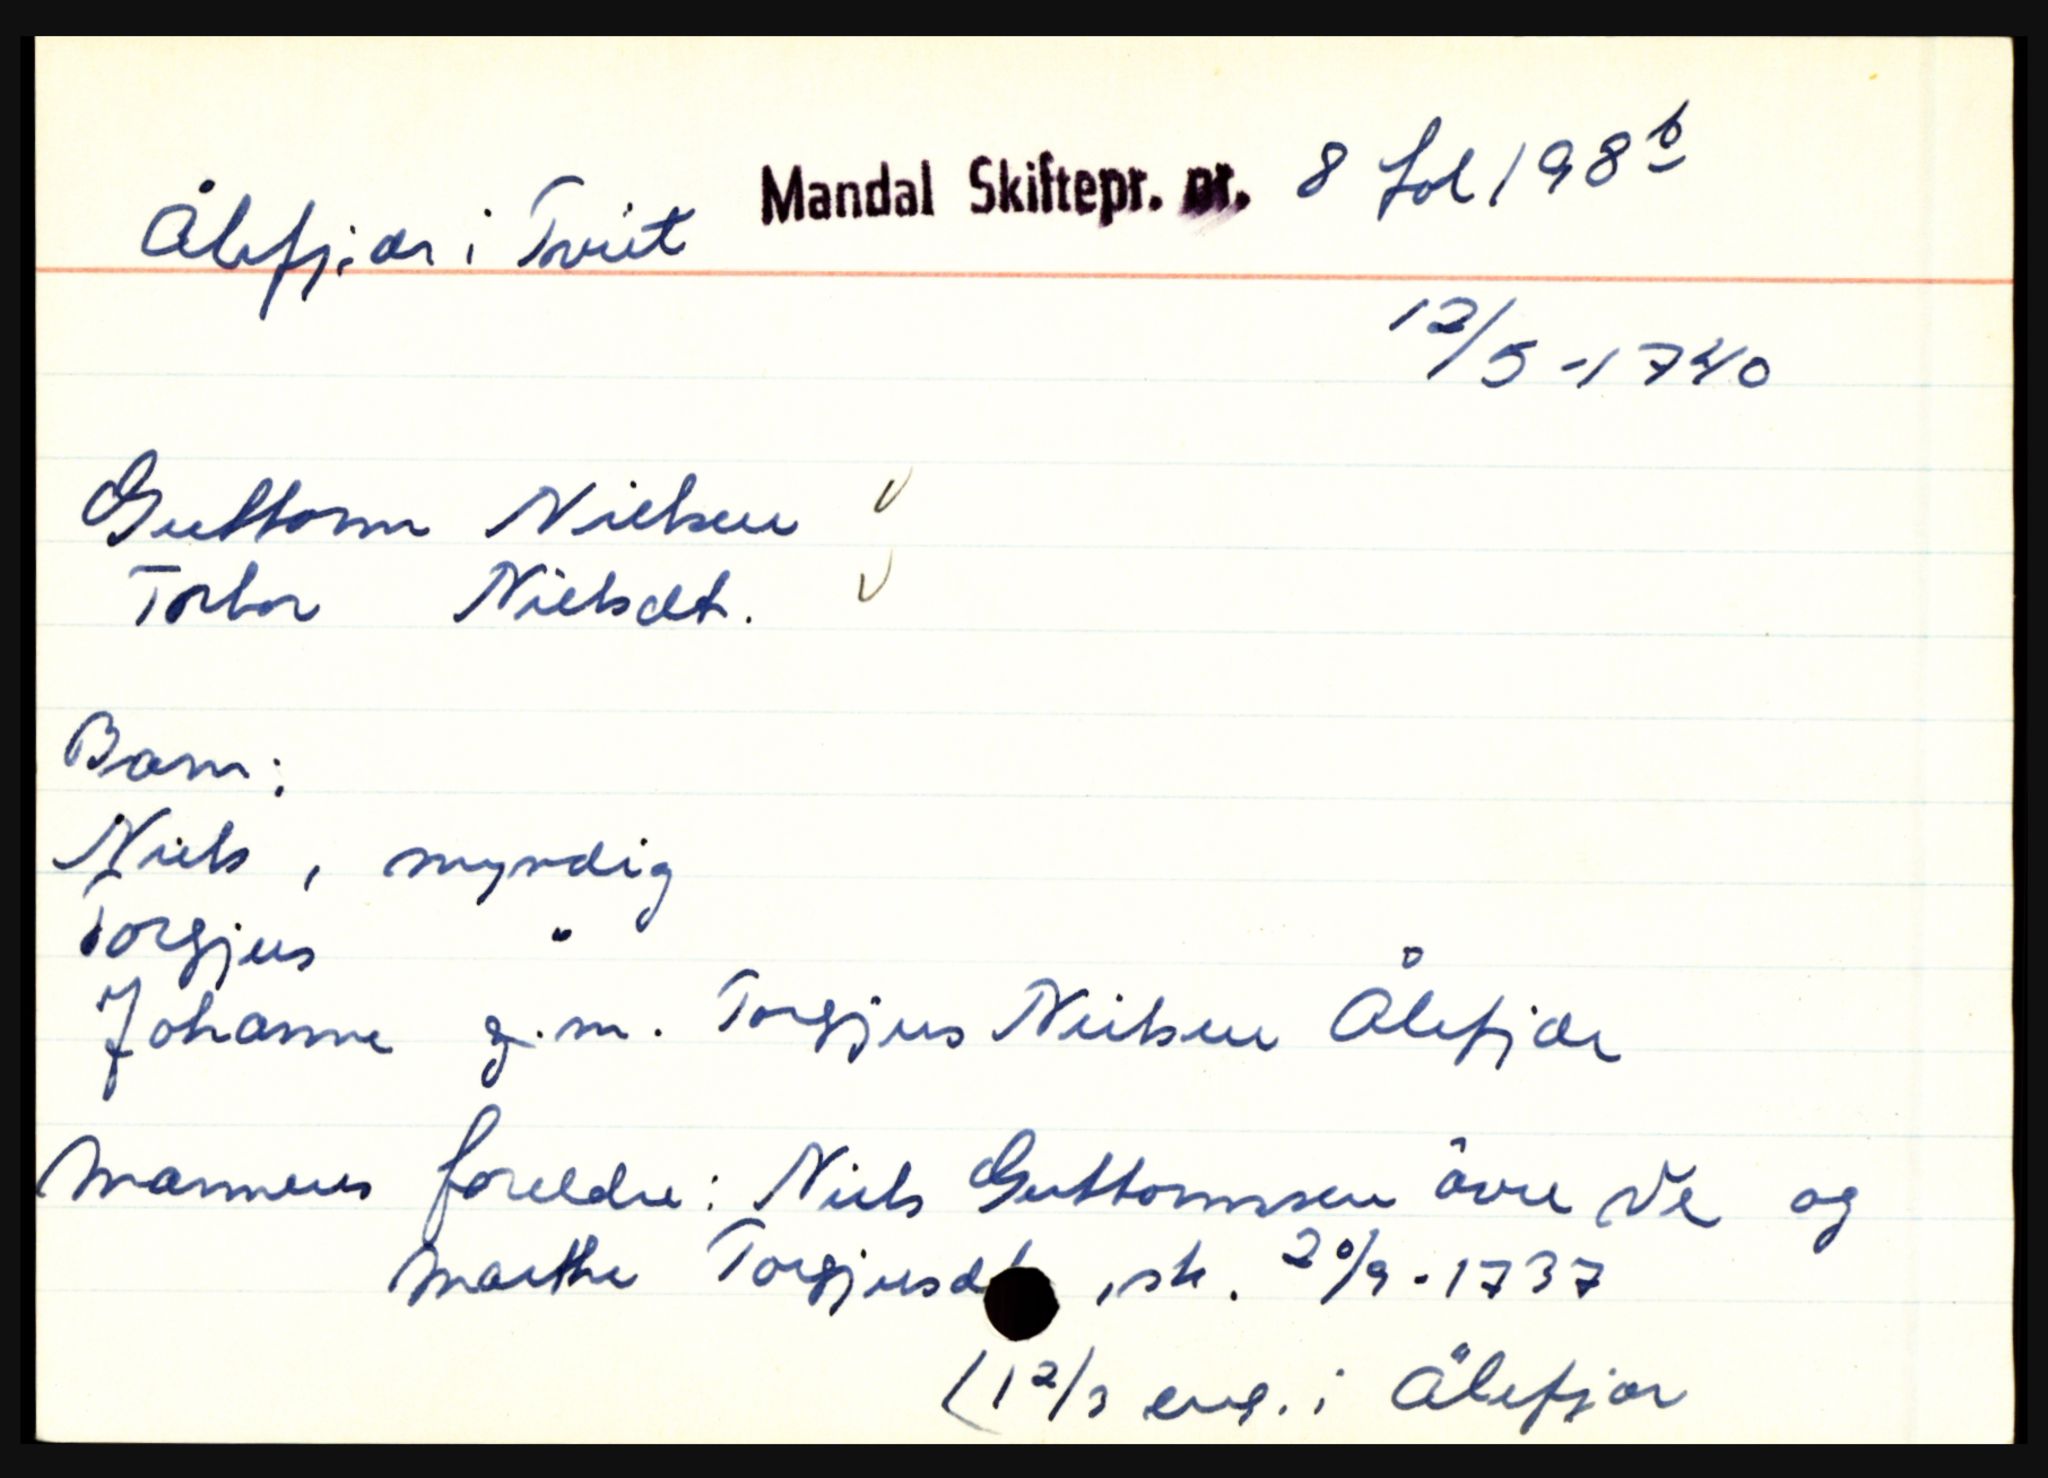 Ålefjær i Tveit Mandal Skiftepr. nr. 8 fol 198 b
12/5-1740
Guttorm Nielsen
Torbor Nielsdt.
Barn:
Niels, myndig
Torgjus "
Johanne g.m. Torgjus Nielsen Ålefjær
Mannens foreldre: Niels Guttormsen övre Ve og
Marthe Torgjusdt, sk. 20/9-1737
(12/3 eng. i Ålefjær